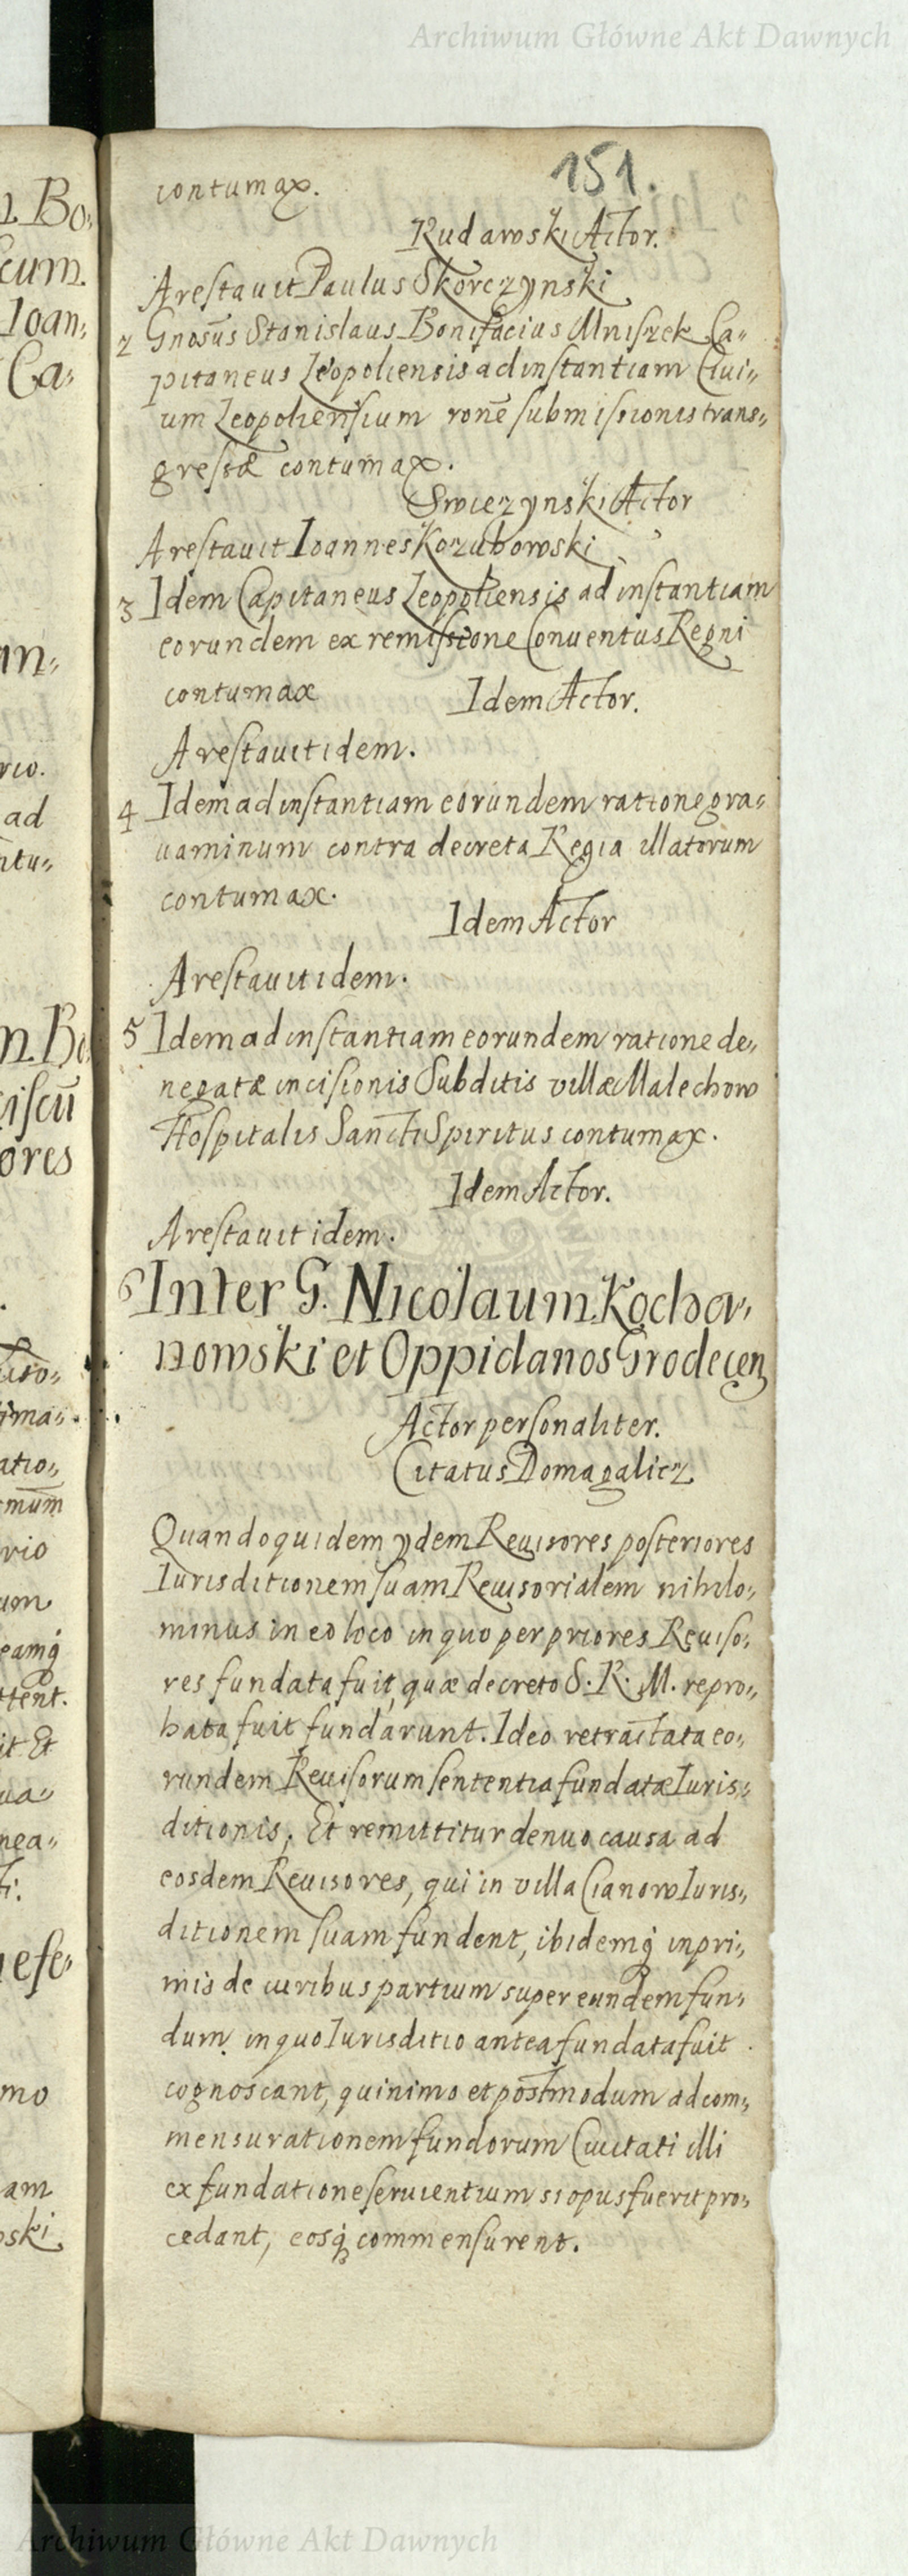 Archiwum Główne Akt Dawnych
151.
contumax.
Rudawski Actor.
Arestauit Paulus Skorczynski
2 Gnosus Stanislaus Bonifacius Mniszek Ca„
pitaneus Leopoliensis ad instantiam Ciui„
um Leopoliensium rone submissionis trans„
gressæ contumax.
Swiezynski Actor
Arestauit Ioannes Kozubowski
3 Idem Capitaneus Leopoliensis ad instantiam
eorundem ex remissione Conuentus Regni
contumax Idem Actor.
Arestauit idem.
4 Idem ad instantiam eorundem ratione gra„
uaminum contra decreta Regia illatorum
contumax.
Idem Actor
Arestauit idem.
5 Idem ad instantiam eorundem ratione de„
negatæ incisionis Subditis villæ Malechow
Hospitalis Sancti Spiritus contumax.
Idem Actor.
Arestauit idem.
6 Inter G. Nicolaum Kocha„
nowski et Oppidanos Grodecen
Actor personaliter.
Citatus Domagalicz
Quandoquidem ydem Reuisores posteriores
Iurisditionem suam Reuisorialem nihilo„
minus in eo loco in quo per priores Reuiso„
res fundata fuit, quæ decreto S. R. M. repro„
bata fuit fundarunt. Ideo retractata eo„
rundem Reuisorum sententia fundatæ Iuris„
ditionis, Et remittitur denuo causa ad
eosdem Reuisores, qui in villa Cianow Iuris„
ditionem suam fundent, ibidemq inpri„
mis de iuribus partium super eundem fun„
dum in quo Iurisditio antea fundata fuit
cognoscant, quinimo et postmodum ad com„
mensurationem fundorum Ciuitati illi
ex fundatione seruientium si opus fuerit pro„
cedant, eosq commensurent.
Archiwum Główne Akt Dawnych